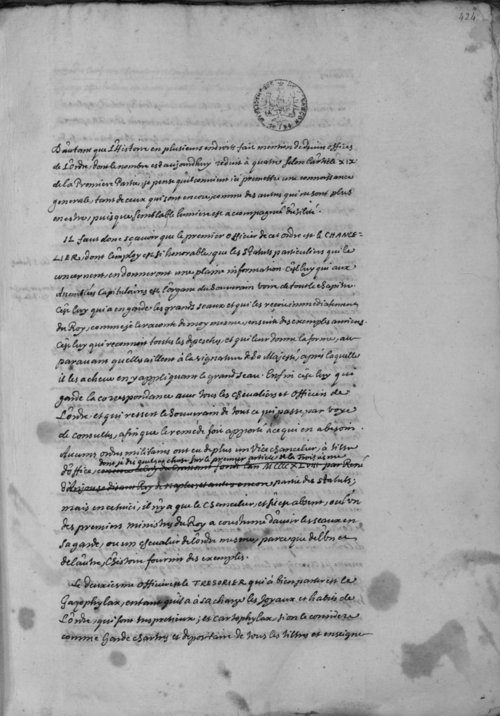 424
D'autant que l'Histoire en plusieurs endroits fait mention de divers offices
de l'ordre, dont le nombre est aujourdhuy reduit à quatre selon l'article XIX
de la Premiere Partie, je pense qu'il convient icy premettre une connoissance
generale, tant de ceux qui sont encore, comme des autres qui ne sont plus
en estre, puisque semblable lumiere est accompagnée d'utilité.
IL faut donc sçavoir que le premier officier de cet ordre est le CHANCE-
LIER, dont l'employ est si honorable, que les Statuts particuliers qui le
concernent, en donneront une pleine information. C'est luy qui aux
Capitulaires est l'organe du Souverain voire de tout le chapitre
C'est luy qui a en garde les grands seaux et qui les reçoit immediatement
du Roy, comme je le raconte de moy mesme, ensuite des exemples anciens.
C'est luy qui reconnoit toutes les depesches et qui leur donne la forme, au-
paravant qu'elles aillent à la signature de Sa Majesté, apres laquelle
il les acheve en y appliquant le grand seau. Enfin c'est luy qui
garde la correspondance avec tous les chevaliers et officiers de
l'ordre et qui le Souverain de tout ce qui passe par voye
de consulte, afin que le remede soit apporté à ce qui en a besoin.
Aucuns ordres militaires ont eu de plus un Vice chancelier, à tiltre
d'office, dont je dis quelque chose sur le premier article de la Troisiesme
par René
partie des Statuts;
mais en cetuicy, il n'y a que le Chancelier, et s'il est absent, ou l'un
des premiers ministres du Roy a coustume d'avoir les seaux en
sa garde, ou un chevalier de l'ordre mesme, parce que de l'un et
de l'autre, l'histoire fournit des exemples.
Le deuxiesme officier est le TRESORIER qui à bien parler est le
Gazophylax, entant qu'il a à sa charge les Joyaux et habits de
l'ordre, qui sont tres pretieux; et Cartophylax, si on le considere
comme Garde chartres et depositaire de tous les tiltres et enseigne-